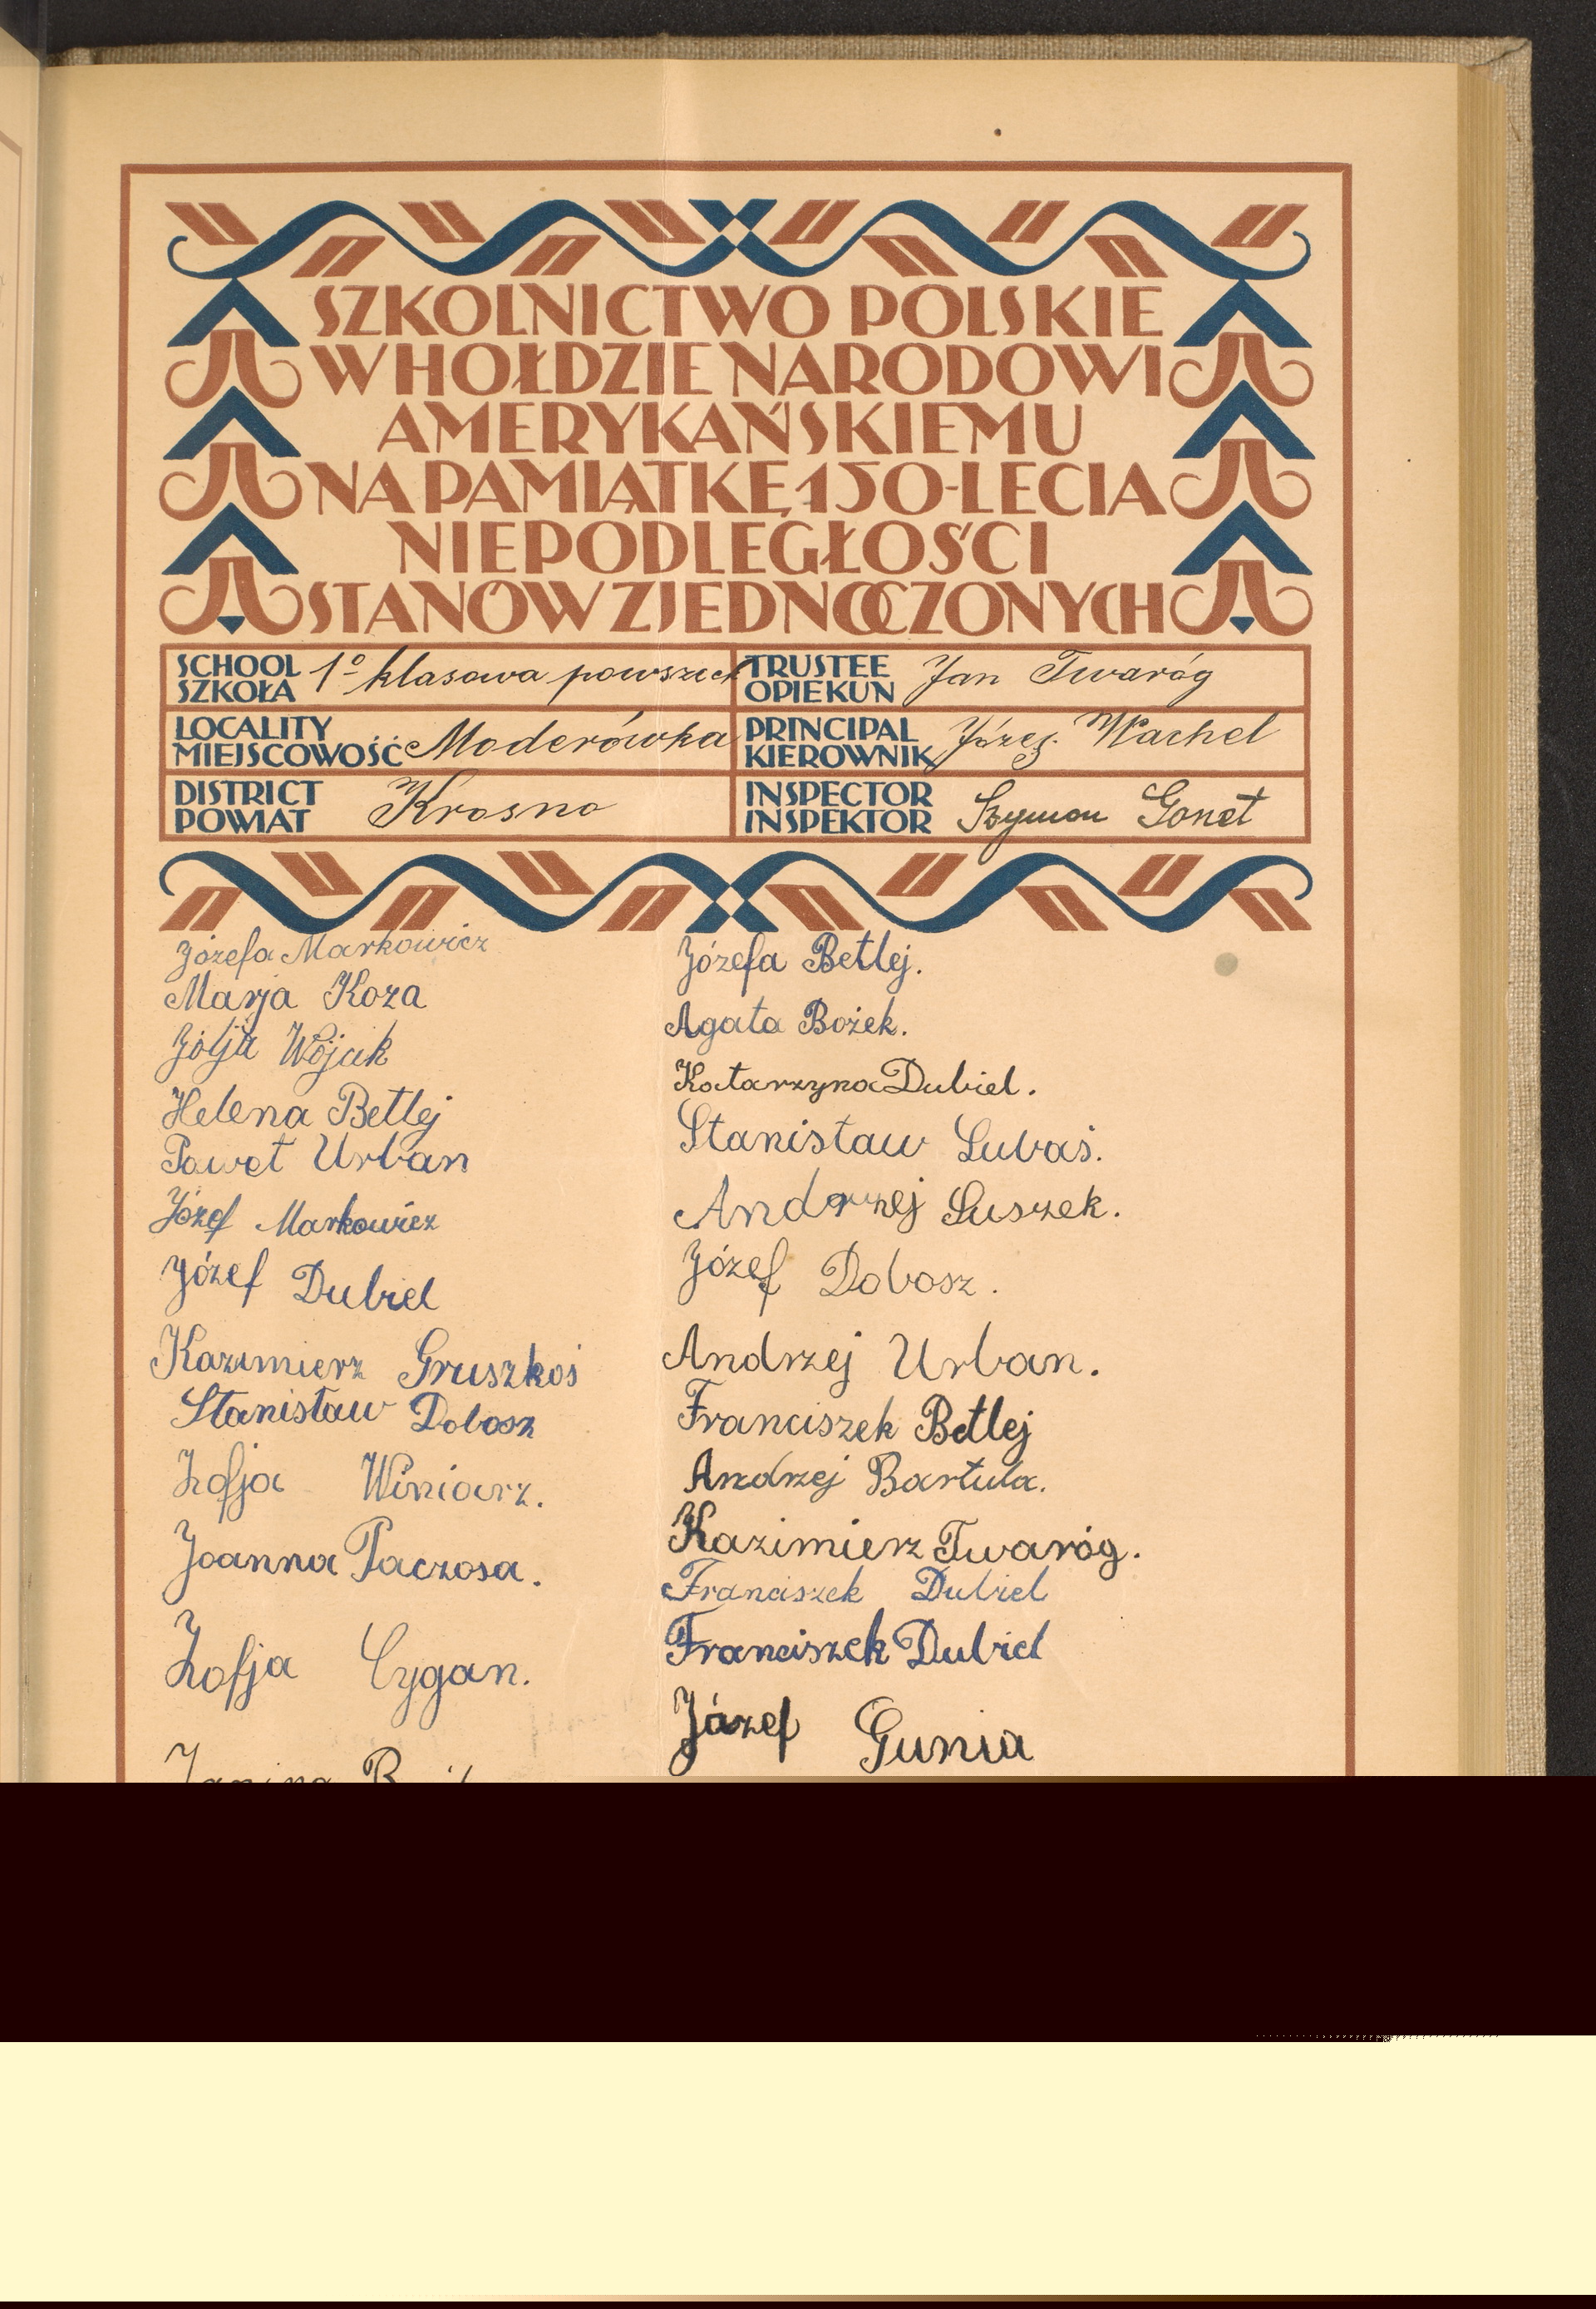 SZKOLNICTWO POLSKIE
W HOŁDZIE NARODOWI
AMERYKAŃSKIEMU
NA PAMIĄTKĘ 150-LECIA
NIEPODLEGŁOŚCI
STANÓW ZJEDNOCZONYCH
SCHOOL
SZKOŁA
1º klasowa powszech
TRUSTEE
OPIEKUN
Jan Twaróg
LOCALITY
MIEJSCOWOŚĆ
Moderówka
PRINCIPAL
KIEROWNIK
Józef Machel
DISTRICT
POWIAT
Krosno
INSPECTOR
INSPEKTOR
Szymon Gonet
Józefa Markowicz
Marja Koza
Zofja Wójcik
Helena Betlej
Paweł Urban
Józef Markowicz
Józef Dubiel
Kazimierz Gruszkoś
Stanisław Dobosz
Zofja Winiarz.
Joanna Paczosa.
Zofja Cygan.
Janina
Józefa Betlej.
Agata Bożek.
Katarzyna Dubiel.
Stanisław Lubaś.
Andrzej Suszek.
Józef Dobosz.
Andrzej Urban.
Franciszek Betlej
Andrzej Bartula.
Kazimierz Twaróg.
Franciszek Dubiel
Franciszek Dubiel
Józef Gunia